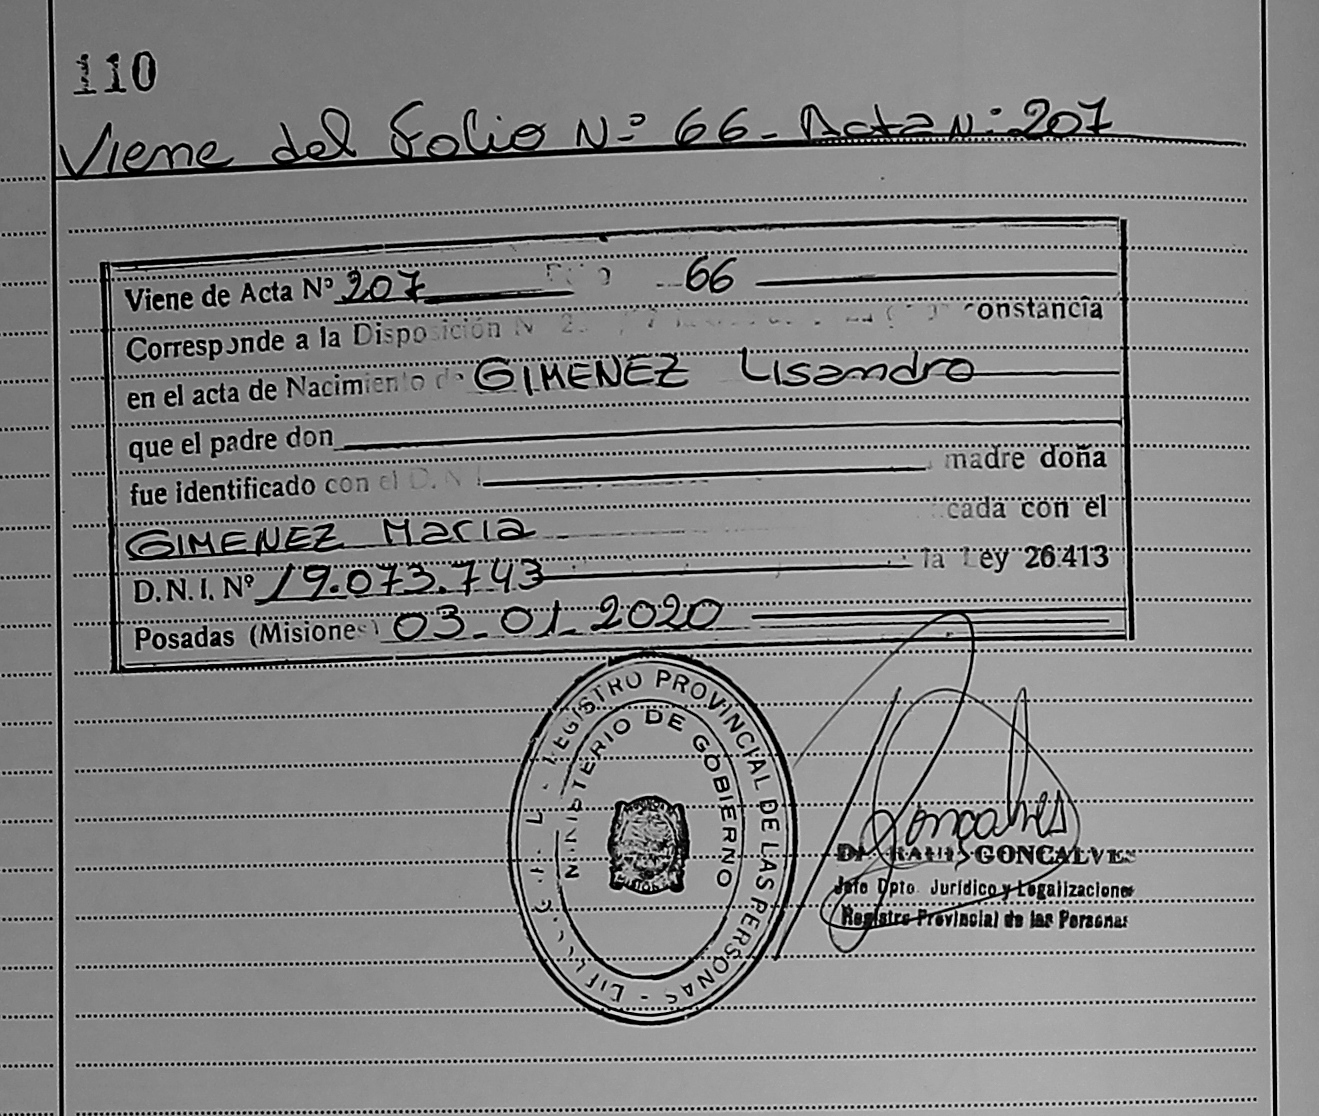 110
Viene del Folio N-º 66- Acta N-º 207
Viene de Acta Nº 207 66
Corresponde a la Disposición N constancia
en el acta de Nacimiento de GIMENEZ Lisandro
que el padre don
fue identificado con el D.N.I. madre doña
GIMENEZ Maria cada con el
D.N.I. Nº 19.073.743 la Ley 26.413
Posadas (Misiones) 03-01-2020
REGISTRO PROVINCIAL DE LAS PERSONAS -
MINISTERIO DE GOBIERNO
Goncalves
GONCALVES
Jefe Dpto. Jurídico y Legalizaciones
Registro Provincial de las Personas